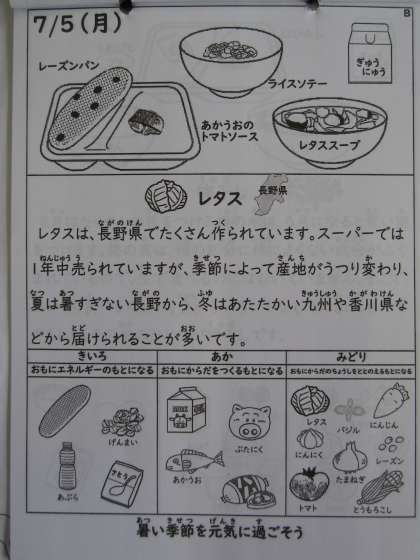 B
7/5(月)
レーズンパン
ライスソテー
ぎゅう
にゅう
あかうおの
トマトソース
レタススープ
レタス
長野県
レタスは、長野県でたくさん作られています。スーパーでは
1年中売られていますが、季節によって産地がうつり変わり、
夏は暑すぎない長野から、冬はあたたかい九州や香川県な
どから届けられることが多いです。
きいろ
おもにエネルギーのもとになる
げんまい
あぶら
さとう
あか
おもにからだをつくるもとになる
ぶたにく
あかうお
みどり
おもにからだのちょうしをととのえるもとになる
レタス
バジル
にんじん
にんにく
たまねぎ
レーズン
トマト
とうもろこし
暑い季節を元気に過ごそう